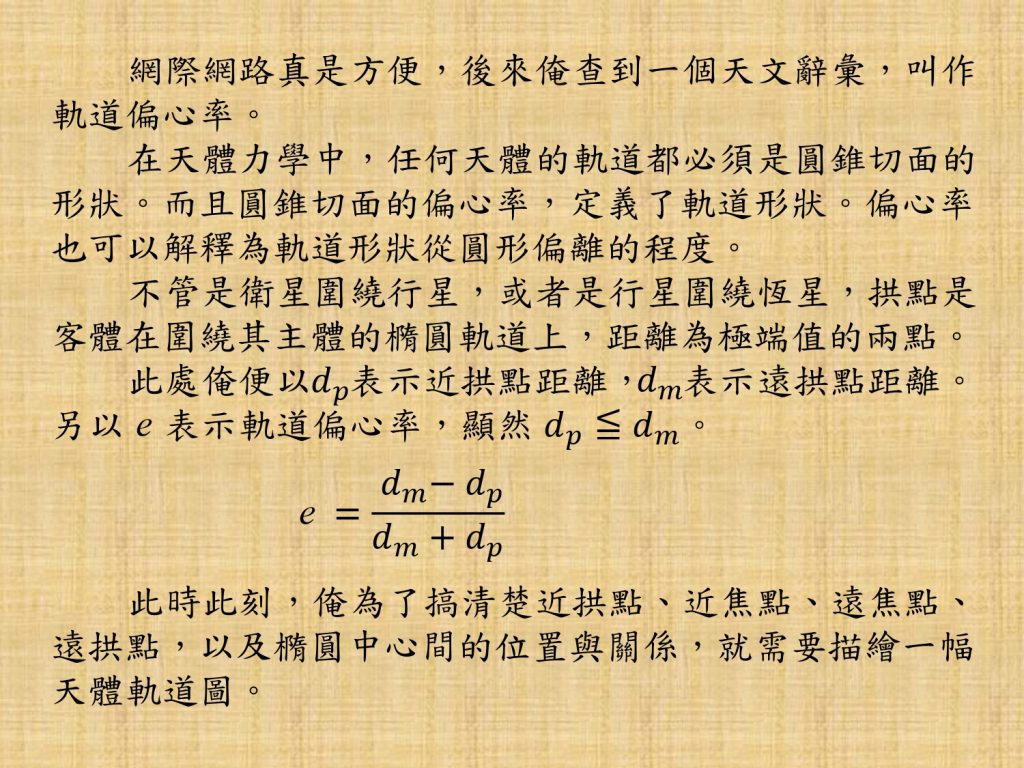 網際網路真是方便，後來俺查到一個天文辭彙，叫作
軌道偏心率。
在天體力學中，任何天體的軌道都必須是圓錐切面的
形狀。而且圓錐切面的偏心率，定義了軌道形狀。偏心率
也可以解釋為軌道形狀從圓形偏離的程度。
不管是衛星圍繞行星，或者是行星圍繞恆星，拱點是
客體在圍繞其主體的橢圓軌道上，距離為極端值的兩點。
此處俺便以𝑑ₚ表示近拱點距離，𝑑ₘ表示遠拱點距離。
另以 𝑒 表示軌道偏心率，顯然 𝑑ₚ ≦ 𝑑ₘ。
𝑒 = (𝑑ₘ − 𝑑ₚ) / (𝑑ₘ + 𝑑ₚ)
此時此刻，俺為了搞清楚近拱點、近焦點、遠焦點、
遠拱點，以及橢圓中心間的位置與關係，就需要描繪一幅
天體軌道圖。